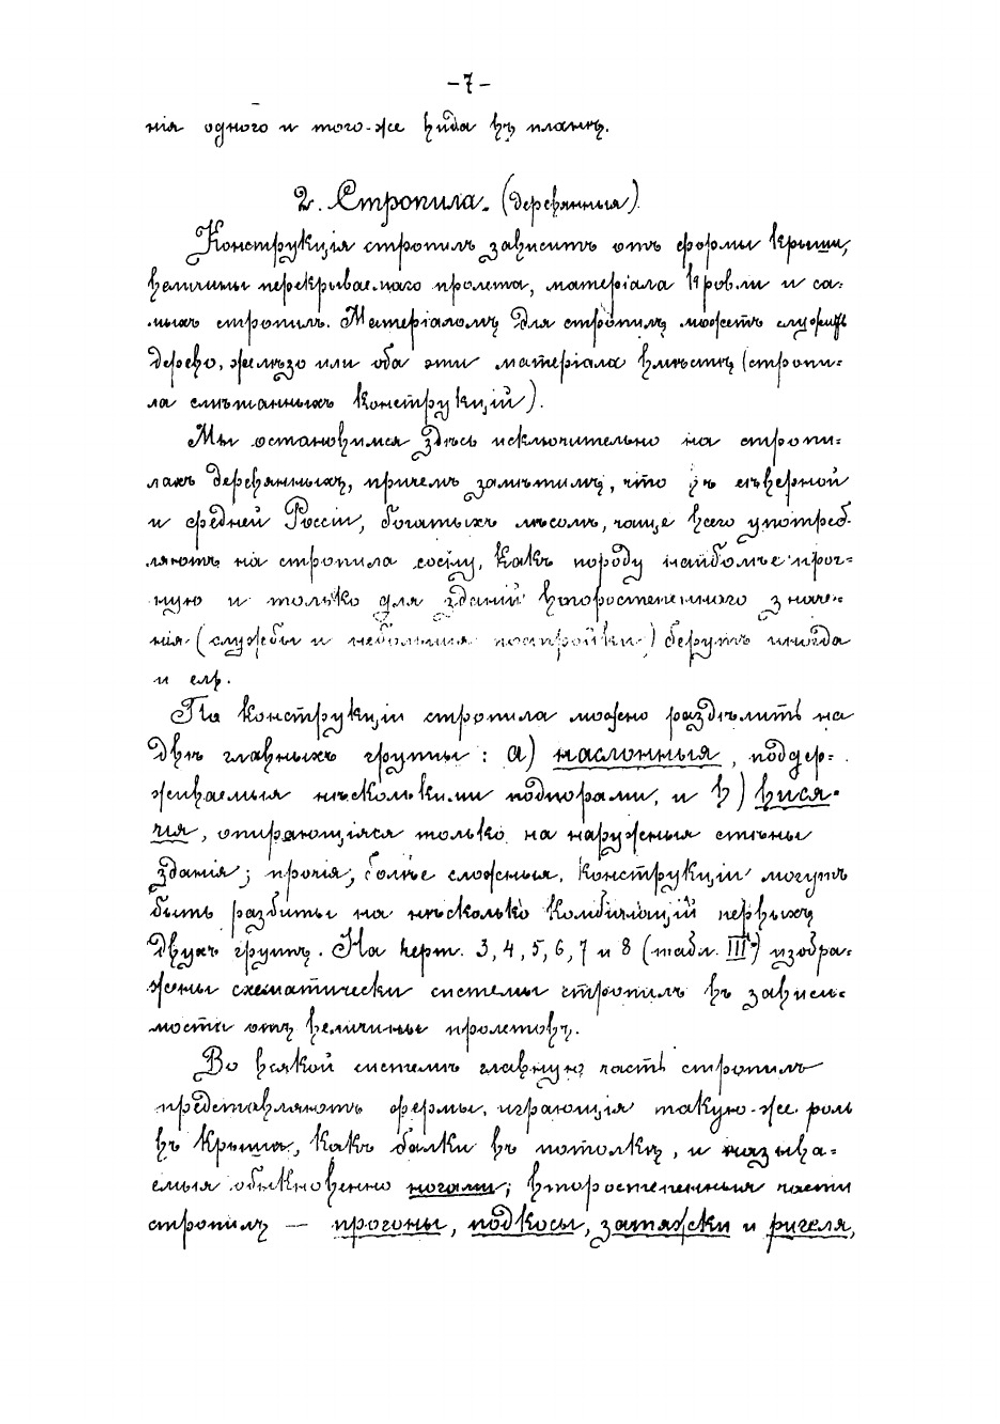 -7-
нія одного и того-же вида въ планѣ.
2. Стропила. (деревянныя)
Конструкція стропилъ зависитъ отъ формы крыши,
величины перекрываемаго пролета, матеріала кровли и са-
мыхъ стропилъ. Матеріаломъ для стропилъ можетъ служить
дерево, желѣзо или оба эти матеріала вмѣстѣ (стропи-
ла смѣшанныхъ конструкцій).
Мы остановимся здѣсь исключительно на стропи-
лахъ деревянныхъ, причемъ замѣтимъ, что въ сѣверной
и средней Россіи, богатыхъ лѣсомъ, чаще всего употреб-
ляютъ на стропила сосну, какъ породу наиболѣе проч-
ную и только для зданій второстепеннаго значе-
нія (службы и небольшія постройки) берутъ иногда
и ель.
По конструкціи стропила можно раздѣлить на
двѣ главныхъ группы: а) наслонныя, поддер-
живаемыя нѣсколькими подпорами, и в) вися-
чія, опирающіяся только на наружныя стѣны
зданія; прочія, болѣе сложныя, конструкціи могутъ
быть разбиты на нѣсколько комбинацій первыхъ
двухъ группъ. На черт. 3, 4, 5, 6, 7 и 8 (табл. III) изобра-
жены схематически системы стропилъ въ зависи-
мости отъ величины пролетовъ.
Во всякой системѣ главную часть стропилъ
представляютъ фермы, играющія такую-же роль
въ крышѣ, какъ балки въ потолкѣ, и называ-
емыя обыкновенно ногами; второстепенныя части
стропилъ — прогоны, подкосы, затяжки и ригеля,